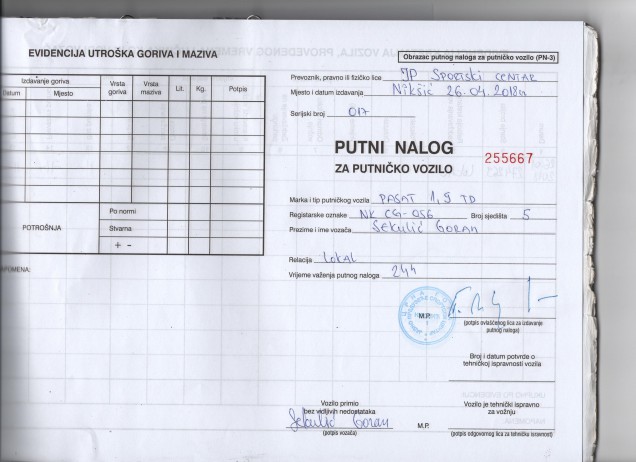 EVIDENCIJA UTROŠKA GORIVA I MAZIVA
Izdavanje goriva
Datum
Mjesto
Vrsta goriva
Vrsta maziva
Lit.
Kg.
Potpis
POTROŠNJA
Po normi
Stvarna
+ -
NAPOMENA:
Obrazac putnog naloga za putničko vozilo (PN-3)
Prevoznik, pravno ili fizičko lice JP SPORTSKI CENTAR
Mjesto i datum izdavanja Nikšić 26.04.2018
Serijski broj 017
PUTNI NALOG
ZA PUTNIČKO VOZILO
255667
Marka i tip putničkog vozila PASAT 1,9 TD
Registarske oznake NK CG-056 Broj sjedišta 5
Prezime i ime vozača SEKULIĆ GORAN
Relacija LOKAL
Vrijeme važenja putnog naloga 24h
M.P.
(potpis ovlašćenog lica za izdavanje
putnog naloga)
Broj i datum potvrde o
tehničkoj ispravnosti vozila
Vozilo primio
bez vidljivih nedostataka
Sekulić Goran
(potpis vozača)
M.P.
Vozilo je tehnički ispravno
za vožnju
(potpis odgovornog lica za tehničku isravnost)